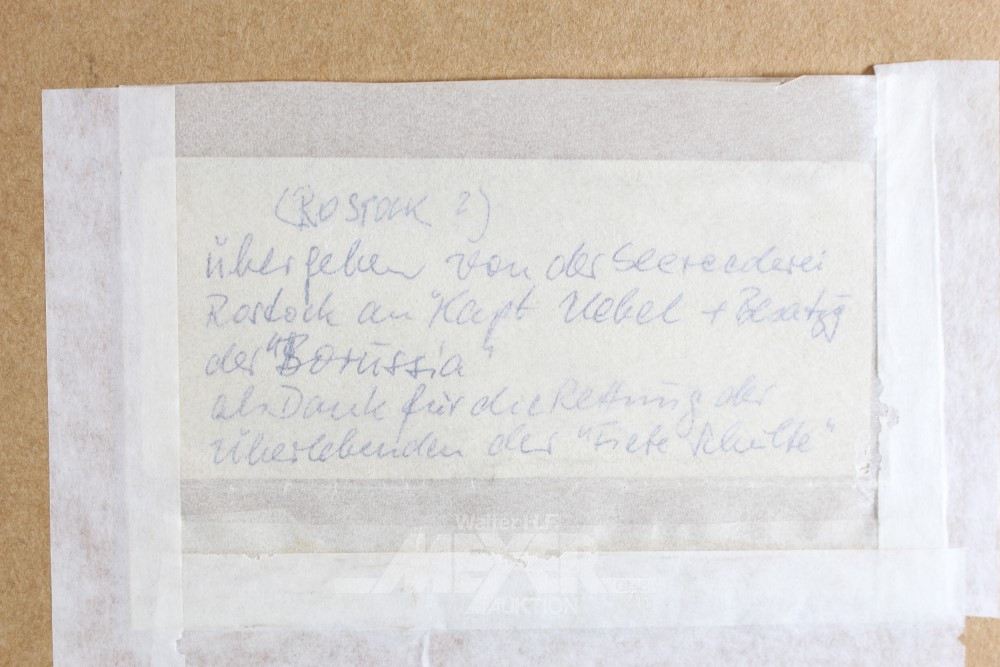 (Rostock ?)
übergeben von der Seereederei
Rostock an "Kapt Uebel + Besatzg
der "Borussia"
als Dank für die Rettung der
Überlebenden der "Fiete Schulte"
Walter H.F.
MEYER
AUKTION